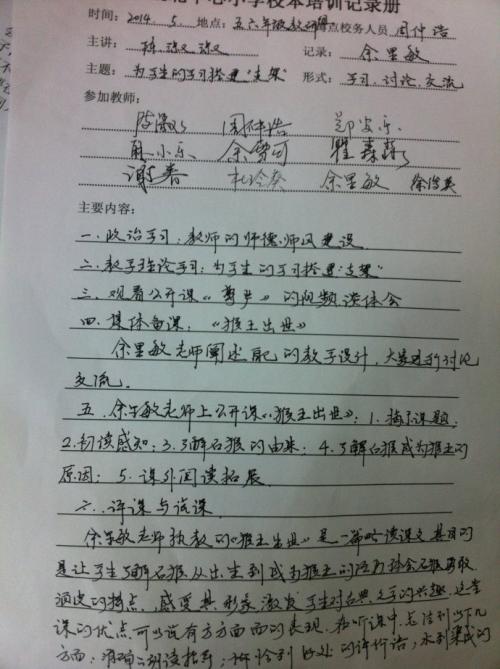 中心小学校本培训记录册
时间：2014.5 地点：五六年级教研 点校务人员 周仲浩
主讲： 记录：余星敏
主题：为学生的学习搭建"支架" 形式：学习、讨论、交流
参加教师：
周仲浩
余星敏
主要内容：
一、政治学习：教师的师德师风建设
二、教学理论学习：为学生的学习搭建"支架"
三、观看公开课《尊严》的视频谈体会
四、集体备课：《猴王出世》
余星敏老师阐述自己的教学设计，大家进行讨论
交流。
五、余星敏老师上公开课《猴王出世》：1.揭示课题；
2.初读感知；3.了解石猴的由来；4.了解石猴成为猴王的
原因；5.课外阅读拓展
六、评课与议课
余星敏老师执教的《猴王出世》是一篇略读课文 其目的
是让学生了解石猴从出生到成为猴王的经历 体会石猴勇敢
的特点，感受其形象，激发学生对古典文学的兴趣。这堂
课的优点可以说有方方面面的表现。在听课中，总结到以下几
方面：有朗读指导；恰到好处的评价语，水到渠成的